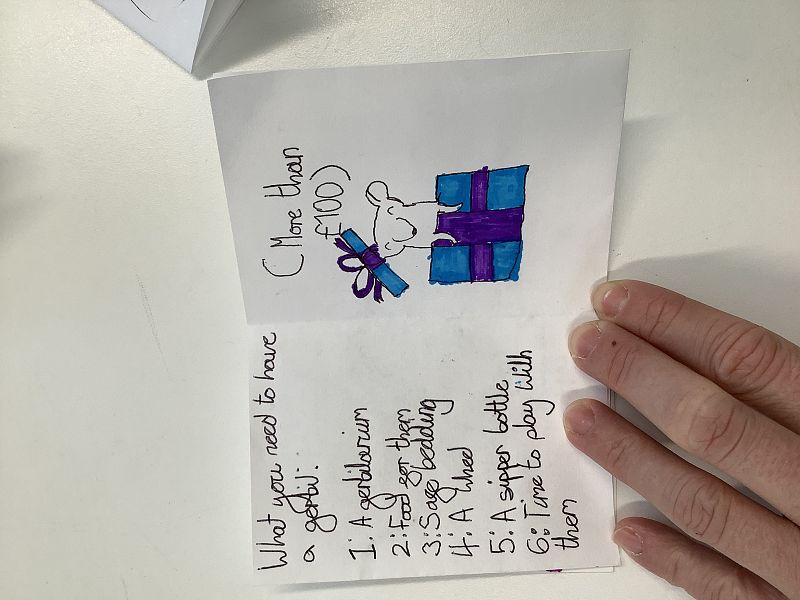 What you need to have
a gerbil:
1: A gerbilarium
2: Food for them
3: Safe bedding
4: A wheel
5: A sipper bottle
6: Time to play with
them
(More than
£100)